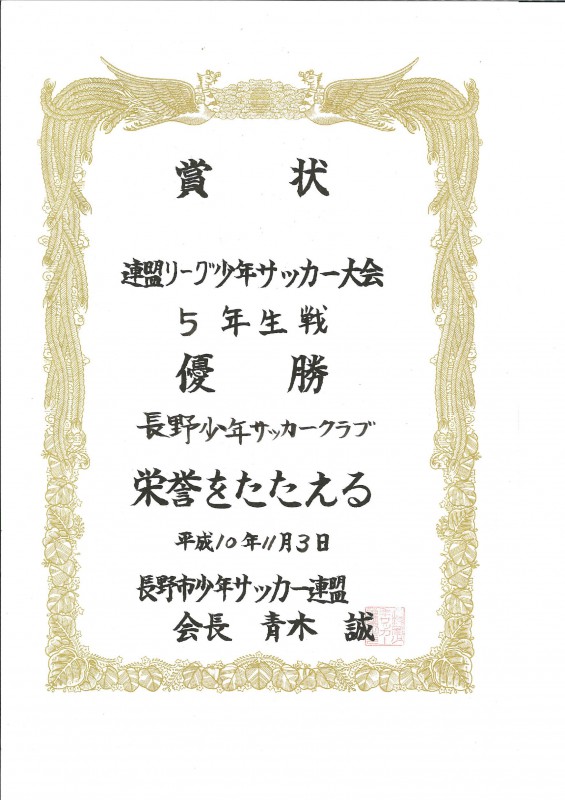 賞状
連盟リーグ少年サッカー大会
5年生戦
優勝
長野少年サッカークラブ
栄誉をたたえる
平成10年11月3日
長野市少年サッカー連盟
会長 青木 誠